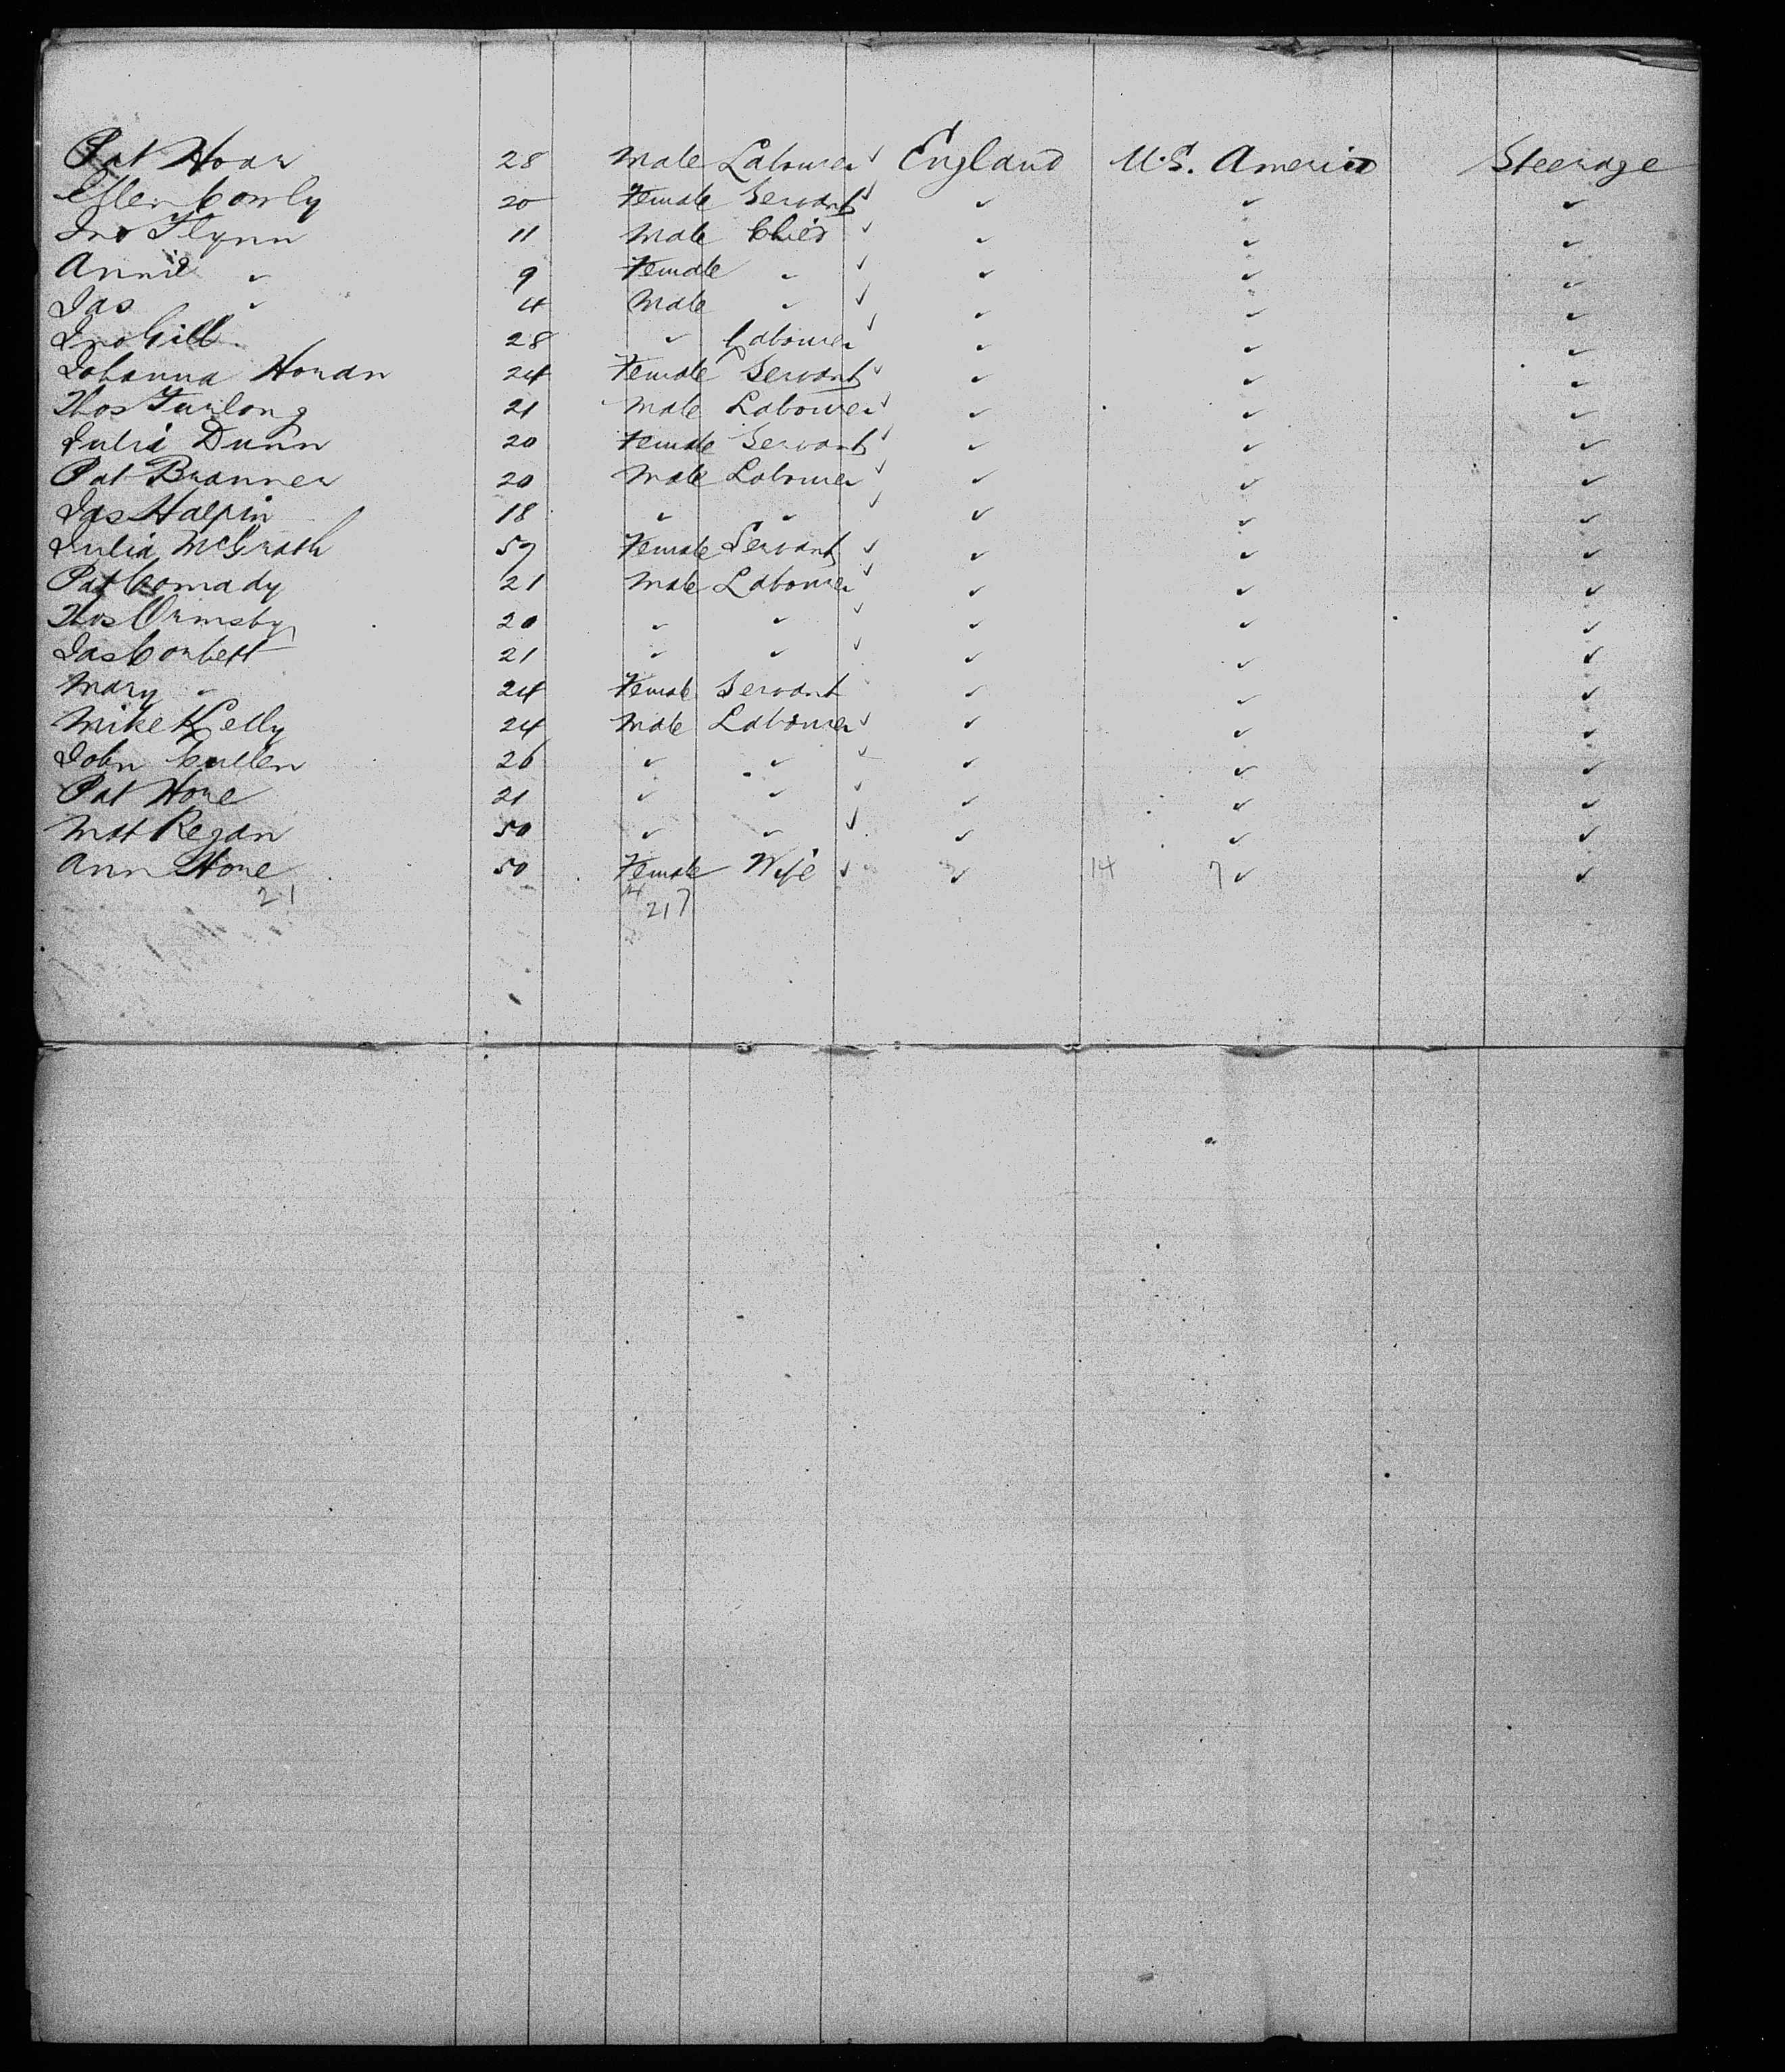 Pat Hoar 28 Male Labourer ✓ England U.S. America Steerage
Ellen Conly 20 Female Servant ✓ ✓ ✓ ✓
Jno Flynn 11 Male Child ✓ ✓ ✓ ✓
Annie ✓ 9 Female ✓ ✓ ✓ ✓ ✓
Jas ✓ 4 Male ✓ ✓ ✓ ✓ ✓
Jno Gill 28 ✓ Labourer ✓ ✓ ✓ ✓
Johanna Horan 24 Female Servant ✓ ✓ ✓ ✓
Thos Furlong 21 Male Labourer ✓ ✓ ✓ ✓
Julia Dunn 20 Female Servant ✓ ✓ ✓ ✓
Pat Branner 20 Male Labourer ✓ ✓ ✓ ✓
Jas Halpin 18 ✓ ✓ ✓ ✓ ✓ ✓
Julia McGrath 57 Female Servant ✓ ✓ ✓ ✓
Pat Comady 21 Male Labourer ✓ ✓ ✓ ✓
Thos Ormsby 20 ✓ ✓ ✓ ✓ ✓ ✓
Jas Corbett 21 ✓ ✓ ✓ ✓ ✓ ✓
Mary ✓ 24 Female Servant ✓ ✓ ✓
Mike Kelly 24 Male Labourer ✓ ✓ ✓ ✓
John Cullen 26 ✓ ✓ ✓ ✓ ✓ ✓
Pat Hore 21 ✓ ✓ ✓ ✓ ✓ ✓
Mat Regan 50 ✓ ✓ ✓ ✓ ✓ ✓
Ann Hore 50 Female Wife ✓ ✓ 14 7 ✓ ✓
21 14 7
21